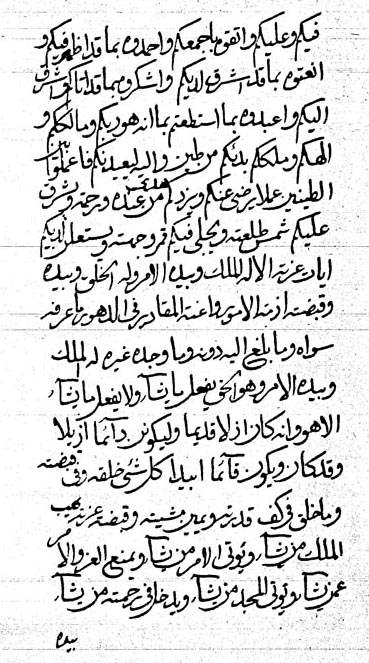 فيكم وعليكم واتقوه باجمعكم واحمدوه بما قد اظهر فيكم و
انعتوه بما قد اشرق لديكم واشكروه بما قد اتاكم واشرق
اليكم واعبدوه بما استطعتم بما انه هو ربكم ومالككم و
الهكم وملككم بدئكم من طين واليه ليعيدنكم فاعملوا بين
الطينين عملا يرضى عنكم ويزدكم من عنده ورحمته ويشرق
عليكم شمس طلعته ويجلى فيكم قمر وحمته ويستعلن لديكم
اياد عزته الا له الملك وبيده الامر وله الخلق وبيده
وقبضته ازمة الامور واعنة المقادير في الدهور ما عرفه
سواه وما بلغ اليه دونه وما وجده غيره له الملك
وبيده الامر وهو الحق يفعل ما يشاء ولا يفعل ما يشاء
الا هو وانه كان ازلا قديما وليكونن دآئما ازيلا
وقد كان ويكون قآئما ابيدا كل شئ خلقه وفى قبضته
وما خلق فى كف قدرته ويمين مشيته وقبضة عزته يهب
الملك من يشاء ويوتى الامر من يشاء ويمنع العز والامر
عمن يشاء ويوتى المجد من يشاء ويدخل فى رحمته من يشاء
بيده